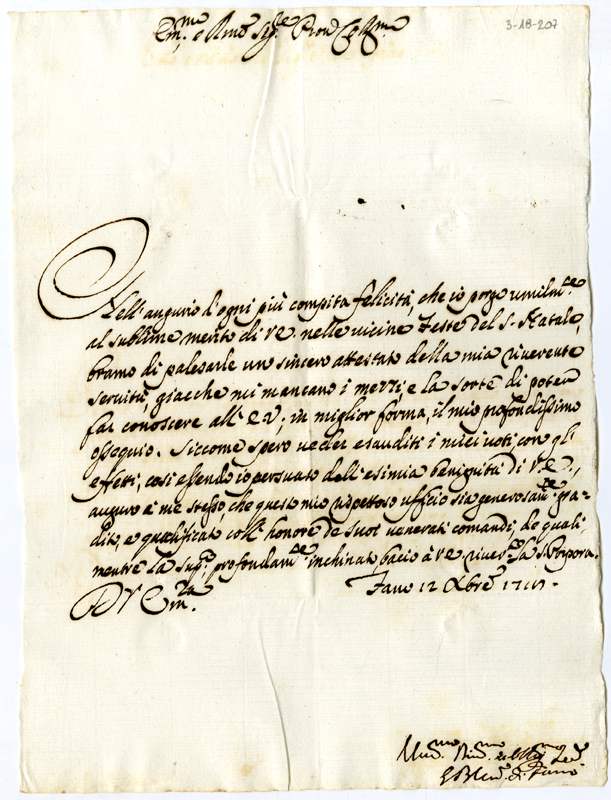 3-18-207
Em.mo e Rmo Sig.re Pron Col.mo
Nell'augurio d'ogni più compita felicità, che io porgo umilm.te
al sublime merito di VE. nelle vicine Feste del S. Natale,
bramo di palesarle un sincero attestato della mia riverente
servitù, giacche mi mancano i mezzi, e la sorte di poter
far conoscere all'EV. in miglior forma, il mio profondissimo
ossequio. Siccome spero veder esauditi i miei voti con gli
effetti, così essendo io persuaso dall'esimia benignità di V.E.,
auguro à me stesso, che questo mio rispettoso ufficio sia generosam.te gra-
dito, e qualificato coll'honore de suoi venerati comandi, de quali
mentre La sup.co profondam.te inchinato bacio à VE. river.te la S. Porpora.
Di V. Em.za
Fano 12 Xbre
Um.mo
di Fano